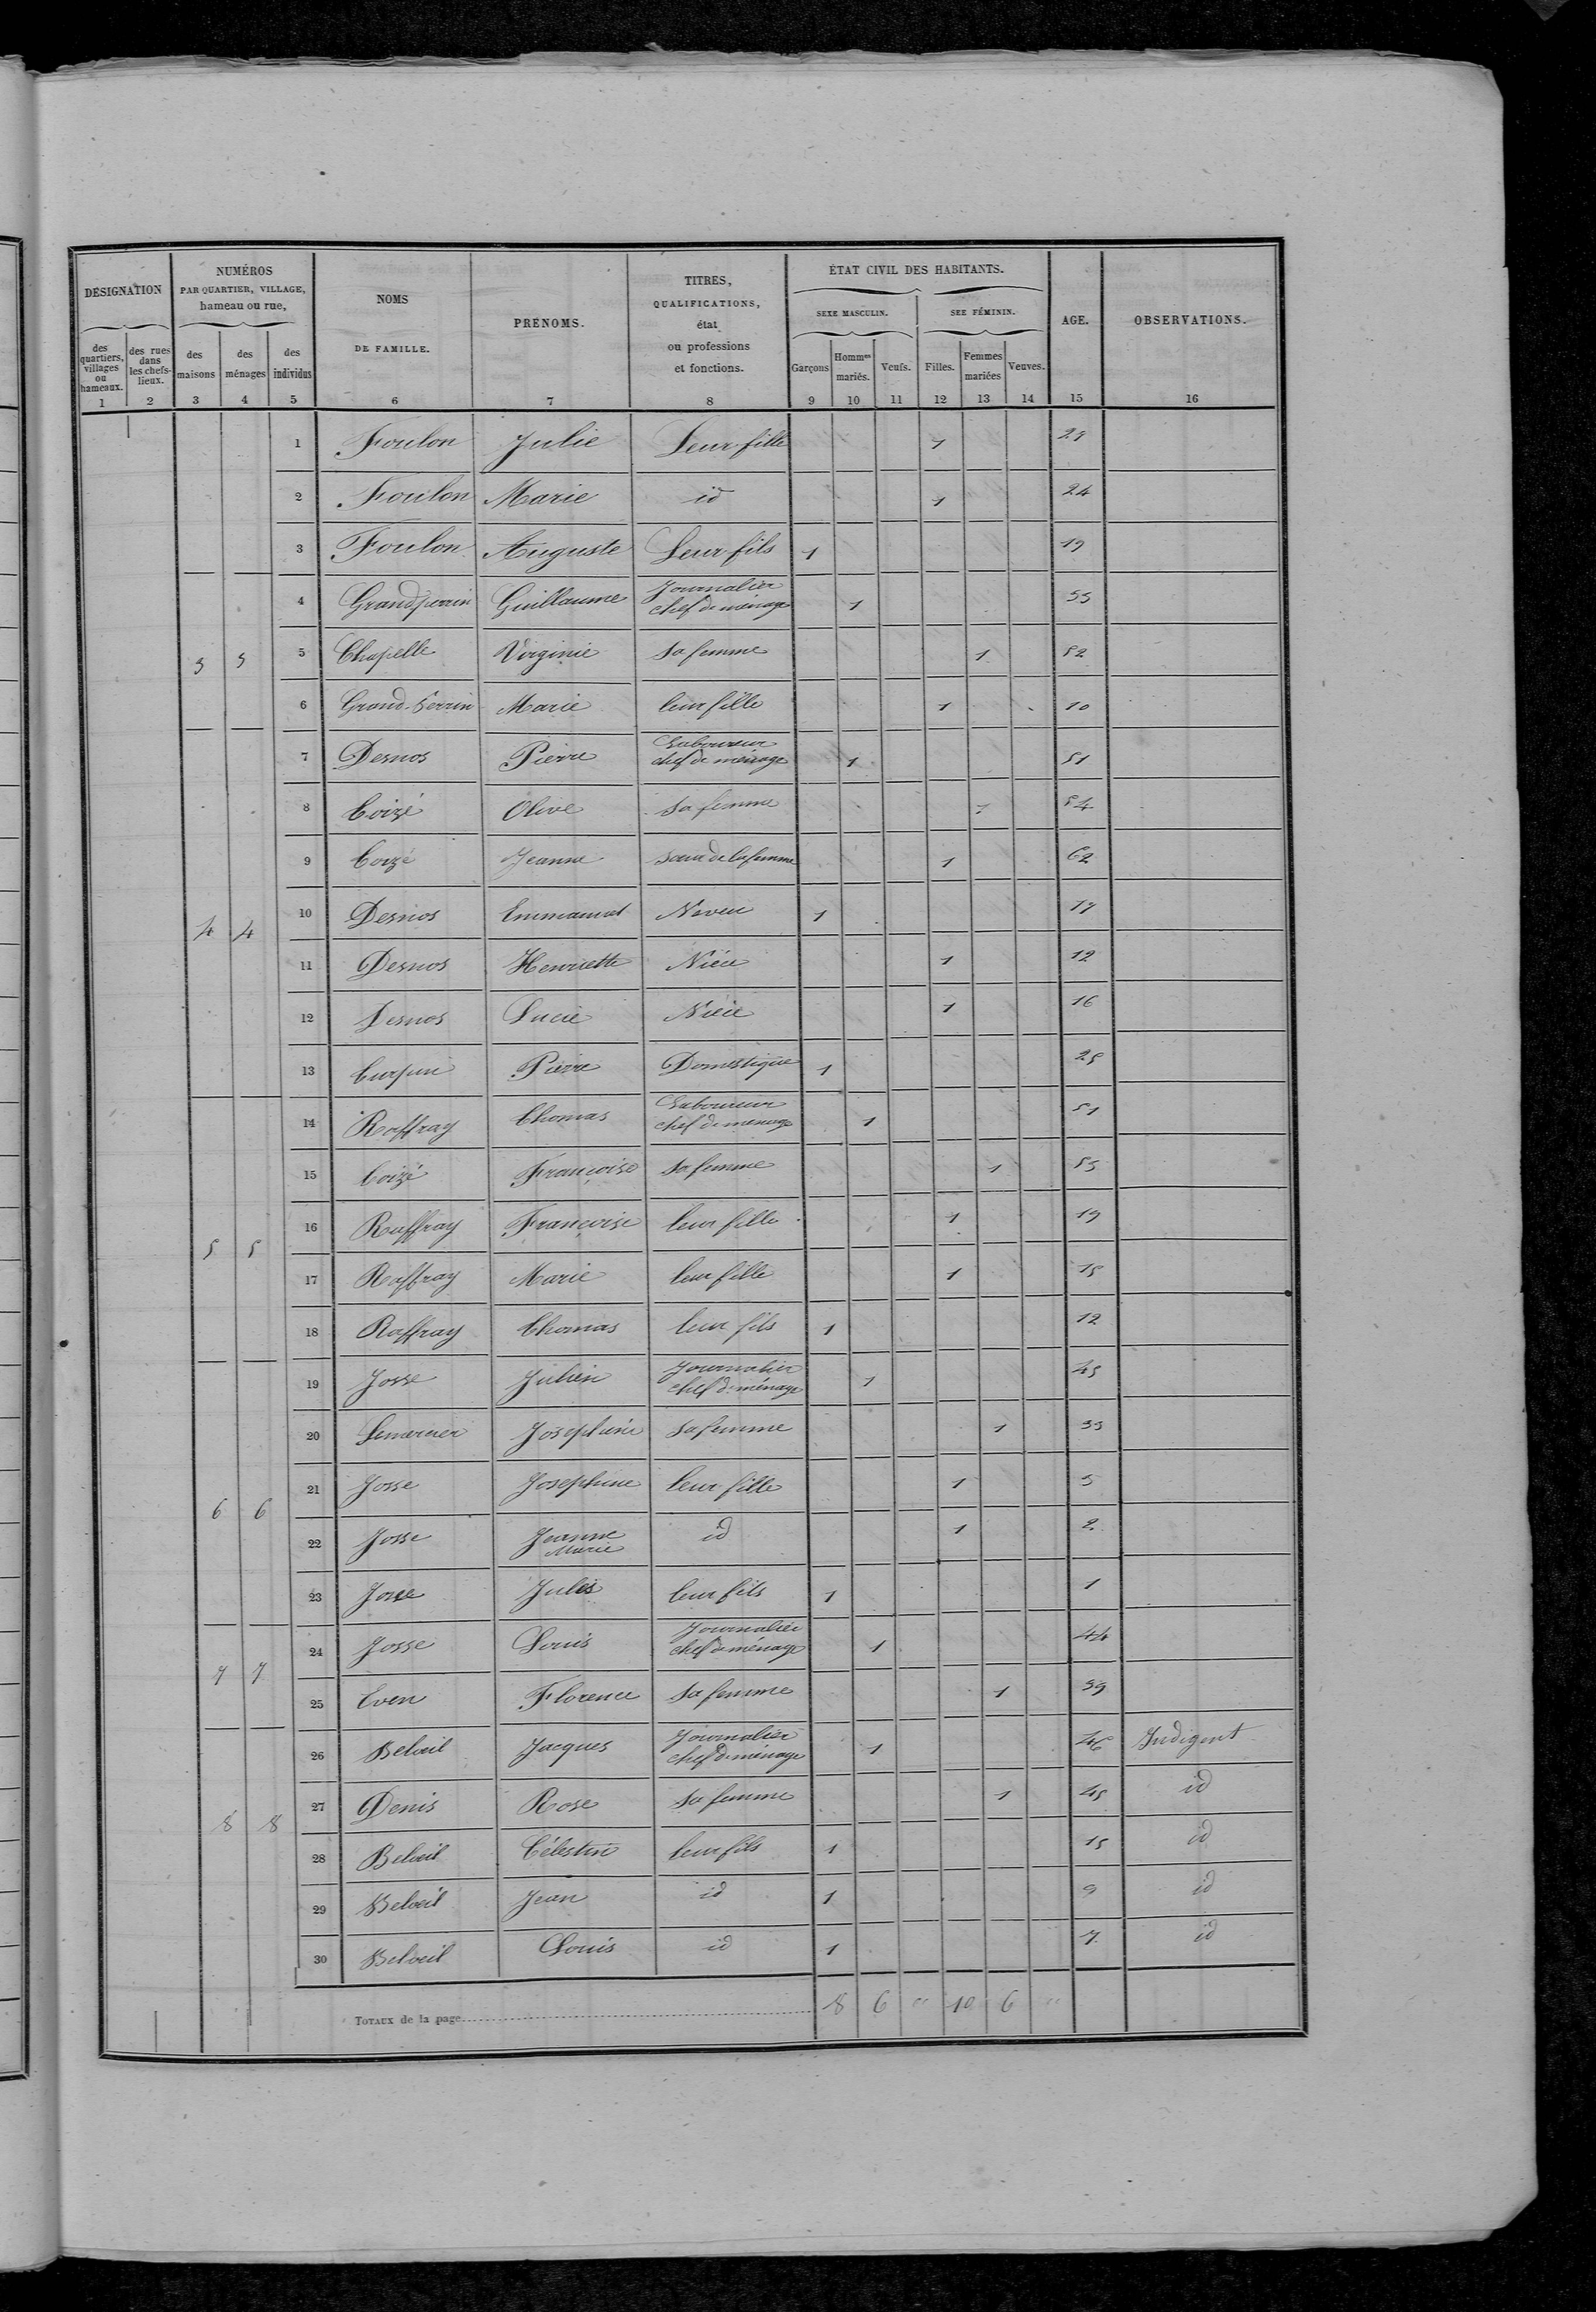 DÉSIGNATION
NUMÉROS
PAR QUARTIER, VILLAGE,
hameau ou rue,
NOMS
DE FAMILLE.
PRÉNOMS.
TITRES,
QUALIFICATIONS,
état
ou professions
et fonctions.
ÉTAT CIVIL DES HABITANTS.
SEXE MASCULIN.
SEE FÉMININ.
AGE.
OBSERVATIONS.
des quartiers, villages ou hameaux.
des rues dans les chefs-lieux.
des maisons
des ménages
des individus
Garçons
Hommes mariés.
Veufs.
Filles.
Femmes mariées
Veuves.
1 2 3 4 5 6 7 8 9 10 11 12 13 14 15 16
1 Foulon Julie Leur fille 1
2 Foulon Marie id 1 24
3 Foulon Auguste Leur fils 1 19
4 Grandperrin Guillaume Journalier chef de ménage 1 55
3 3 5 Chapelle Virginie Sa femme 1 52
6 Grand-Perrin Marie leur fille 1 10
7 Desnos Pierre Laboureur chef de ménage 1 51
8 Coizé Olive Sa femme 1 54
9 Coizé Jeanne Sœur de la femme 1 62
4 4 10 Desnos Emmanuel Neveu 1 17
11 Desnos Henriette Nièce 1 12
12 Desnos Lucie Nièce 1 16
13 Pierre Domestique 1 25
14 Raffray Thomas Laboureur chef de ménage 1 51
15 Coizé Françoise Sa femme 1 53
5 5 16 Raffray Françoise leur fille 1 19
17 Raffray Marie leur fille 1 15
18 Raffray Thomas leur fils 1 12
19 Josse Julien Journalier chef de ménage 1 45
20 Lemercier Josephine Sa femme 1 33
6 6 21 Josse Josephine leur fille 1 5
22 Josse Jeanne Marie id 1 2
23 Josse Jules leur fils 1 1
24 Josse Louis Journalier chef de ménage 1 44
7 7 25 Even Florence Sa femme 1 39
26 Belœil Jacques Journalier chef de ménage 1 46 Indigent
8 8 27 Denis Rose Sa femme 1 45 id
28 Belœil Célestin leur fils 1 15 id
29 Belœil Jean id 1 9 id
30 Belœil Louis id 1 7 id
TOTAUX de la page 8 6 " 10 6 "